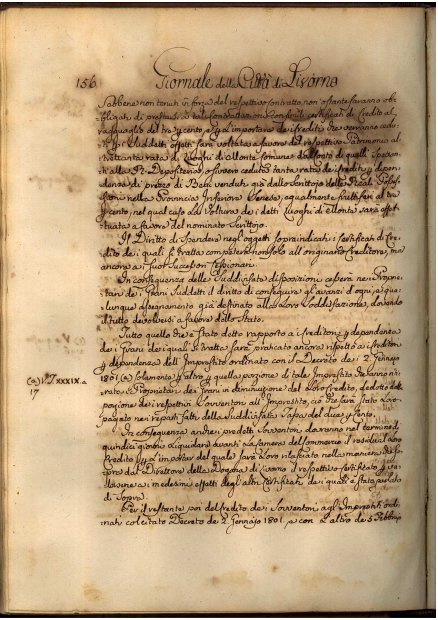 156
Giornale della Città di Livorno
sabbene non tenuti in forza del respettivo contratto non ostante saranno ob-
bligati di prestarsi a tali contrattazioni con simili certificati di Credito al
ragguaglio del tre per cento e per l'importare dei crediti che verranno cedu-
ti per i suddetti effetti sarà voltata a favore del respettivo Patrimonio al-
trettanta rata di Luoghi di Monte Comune dal conto di quelli
alla Depositeria, ovvero ceduta tanta rata dei crediti dipen-
denza di prezzo di Beni venduti già dallo Scrittojo delle Reali Posses-
sioni nella Provincia Inferiore Senese, egualmente fruttiferi al tre
per cento, nel qual caso la Voltura dei detti Luoghi di Monte sarà effet-
tuata a favore del nominato Scrittojo.
Il Diritto di spendere negli oggetti sopraindicati i Certificati di Cre-
dito dei quali si tratta competerà non solo all'originario Creditore, ma
ancora ai suoi Successori e Cessionari.
In conseguenza delle suddivisate disposizioni cesserà nei Proprie-
tari dei Grani suddetti il diritto di conseguire gli avanzi d'ogni, e qua-
lunque assegnamento già destinato alla loro soddisfazione, dovendo
il tutto devolversi a favore dello Stato.
Tutto quello che è stato detto rapporto ai Creditori per dependenza
dei Grani dei quali si tratta sarà praticato ancora rispetto ai Creditori
per dependenza dell'Imprestito ordinato con il Decreto de' 2 Gennajo
1801 (a) solamente per altro per quella porzione di tale Imprestito che
rata i Proprietari dei Grani in diminuzione del loro Credito, dedotto dalla
porzione dei respettivi Sovventori all'Imprestito, ciò che sarà stato loro
pagato nei reparti fatti della suddivisata Tassa del due per cento.
(a) V. T. XXXIX. a
17
In conseguenza anche i predetti Sovventori dovranno nel termine di
quindici giorni liquidare avanti la Camera del Commercio il residual loro
Credito per l'importar del quale sarà loro rilasciato nella maniera di so-
pra dal Direttore della Dogana di Livorno il respettivo certificato per va-
lersene ai medesimi effetti degli altri Certificati dei quali è stato parlato
di sopra.
Per il restante poi del Credito dei Sovventori agli Imprestiti ordi-
nati col citato Decreto de' 2 Gennajo 1801, e con l'altro de' 5 Febbrajo